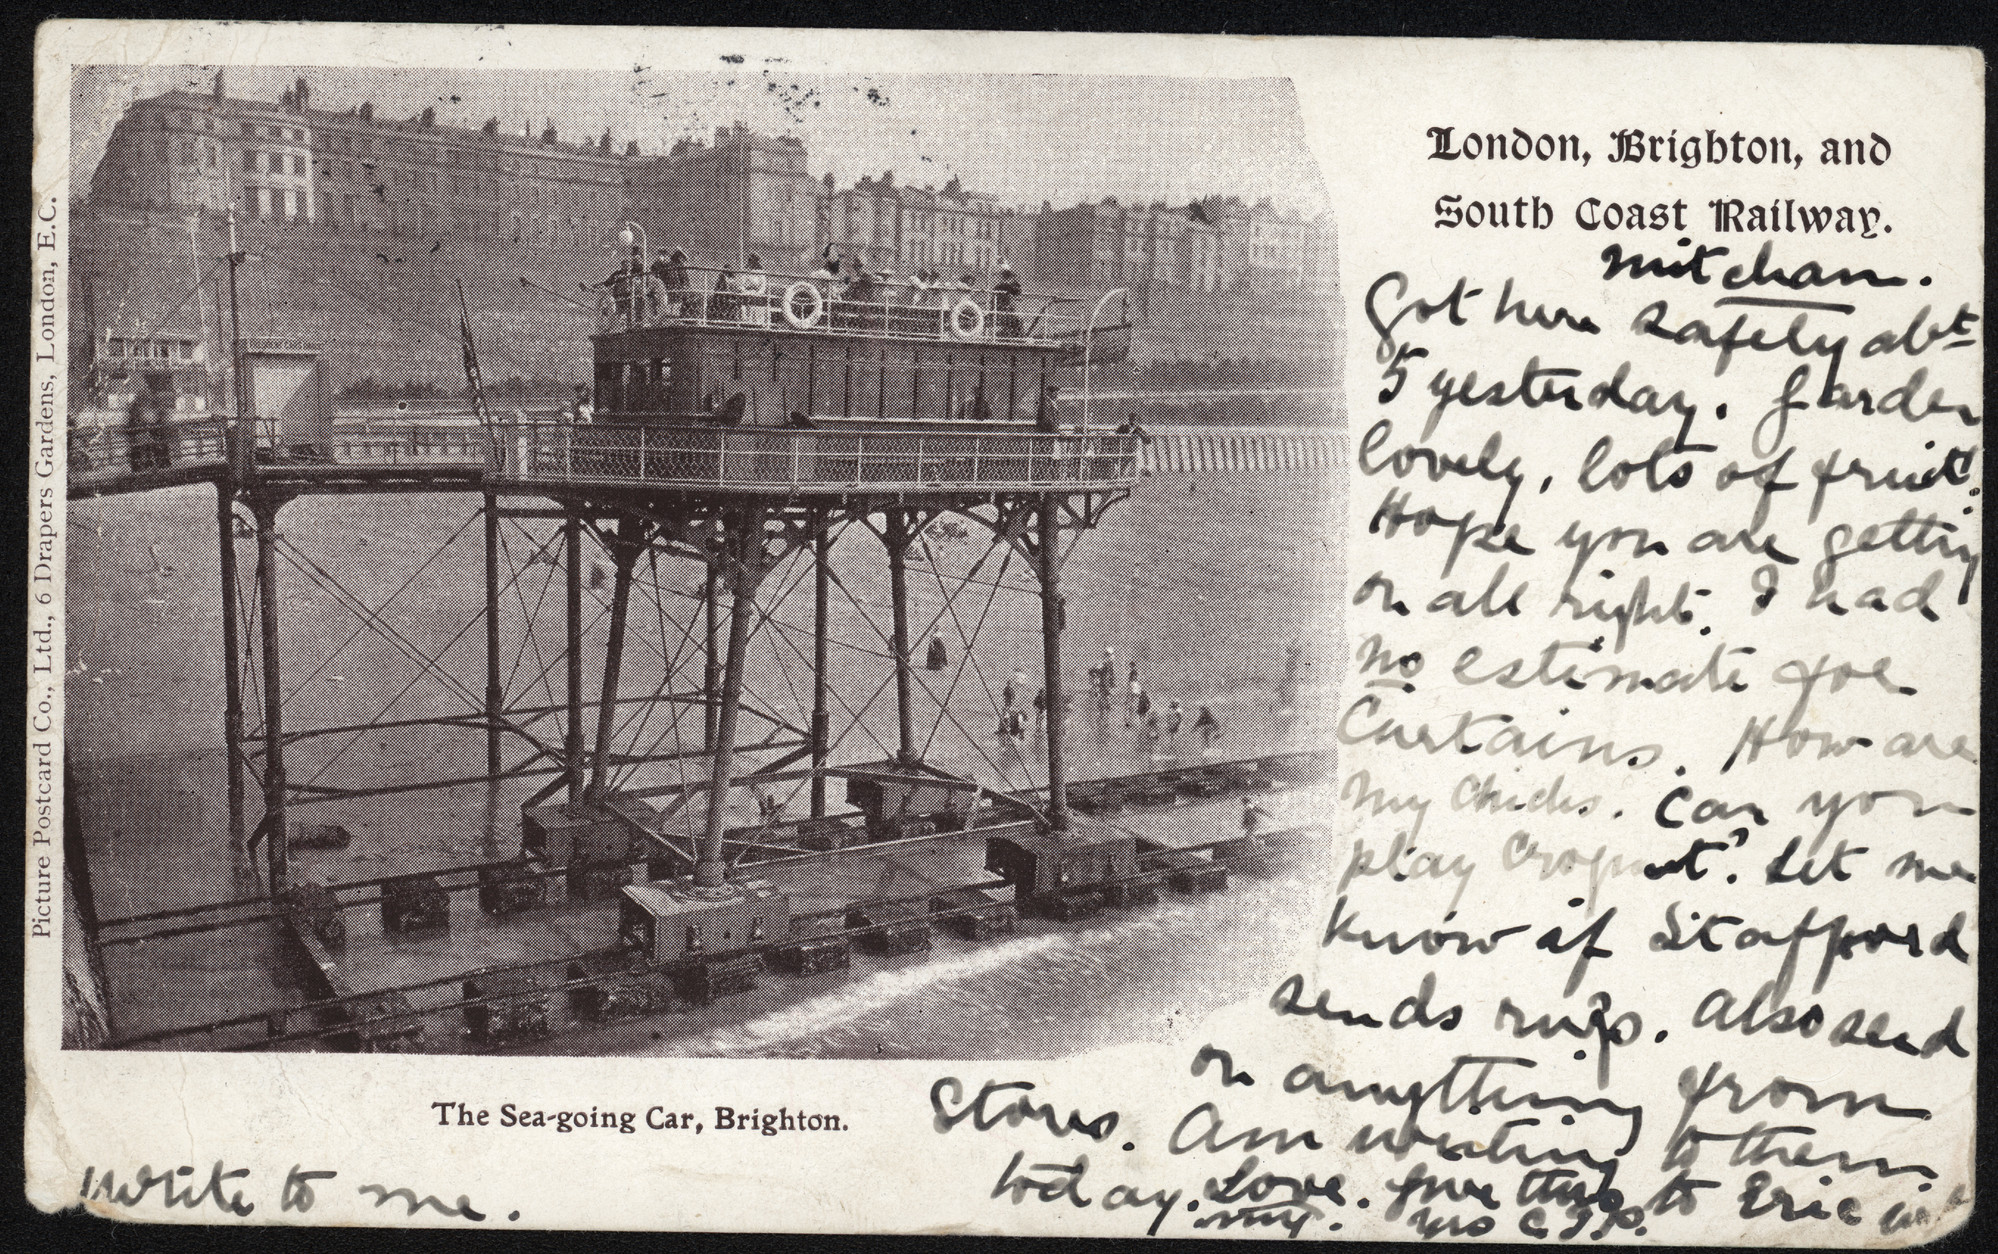 Picture Postcard Co., Ltd., 6 Drapers Gardens, London, E.C.
London, Brighton, and
South Coast Railway.
Mitcham.
Got here safely abt
5 yesterday. Garden
lovely, lots of fruit!
Hope you are getting
on all right. I had
no estimate for
Curtains. How are
my chicks. Can you
play Croquet? Let me
know if Stafford
sends rugs. Also send
on anything from
Stores. Am writing to them
today. Love. Give this to Eric
The Sea-going Car, Brighton.
Write to me.